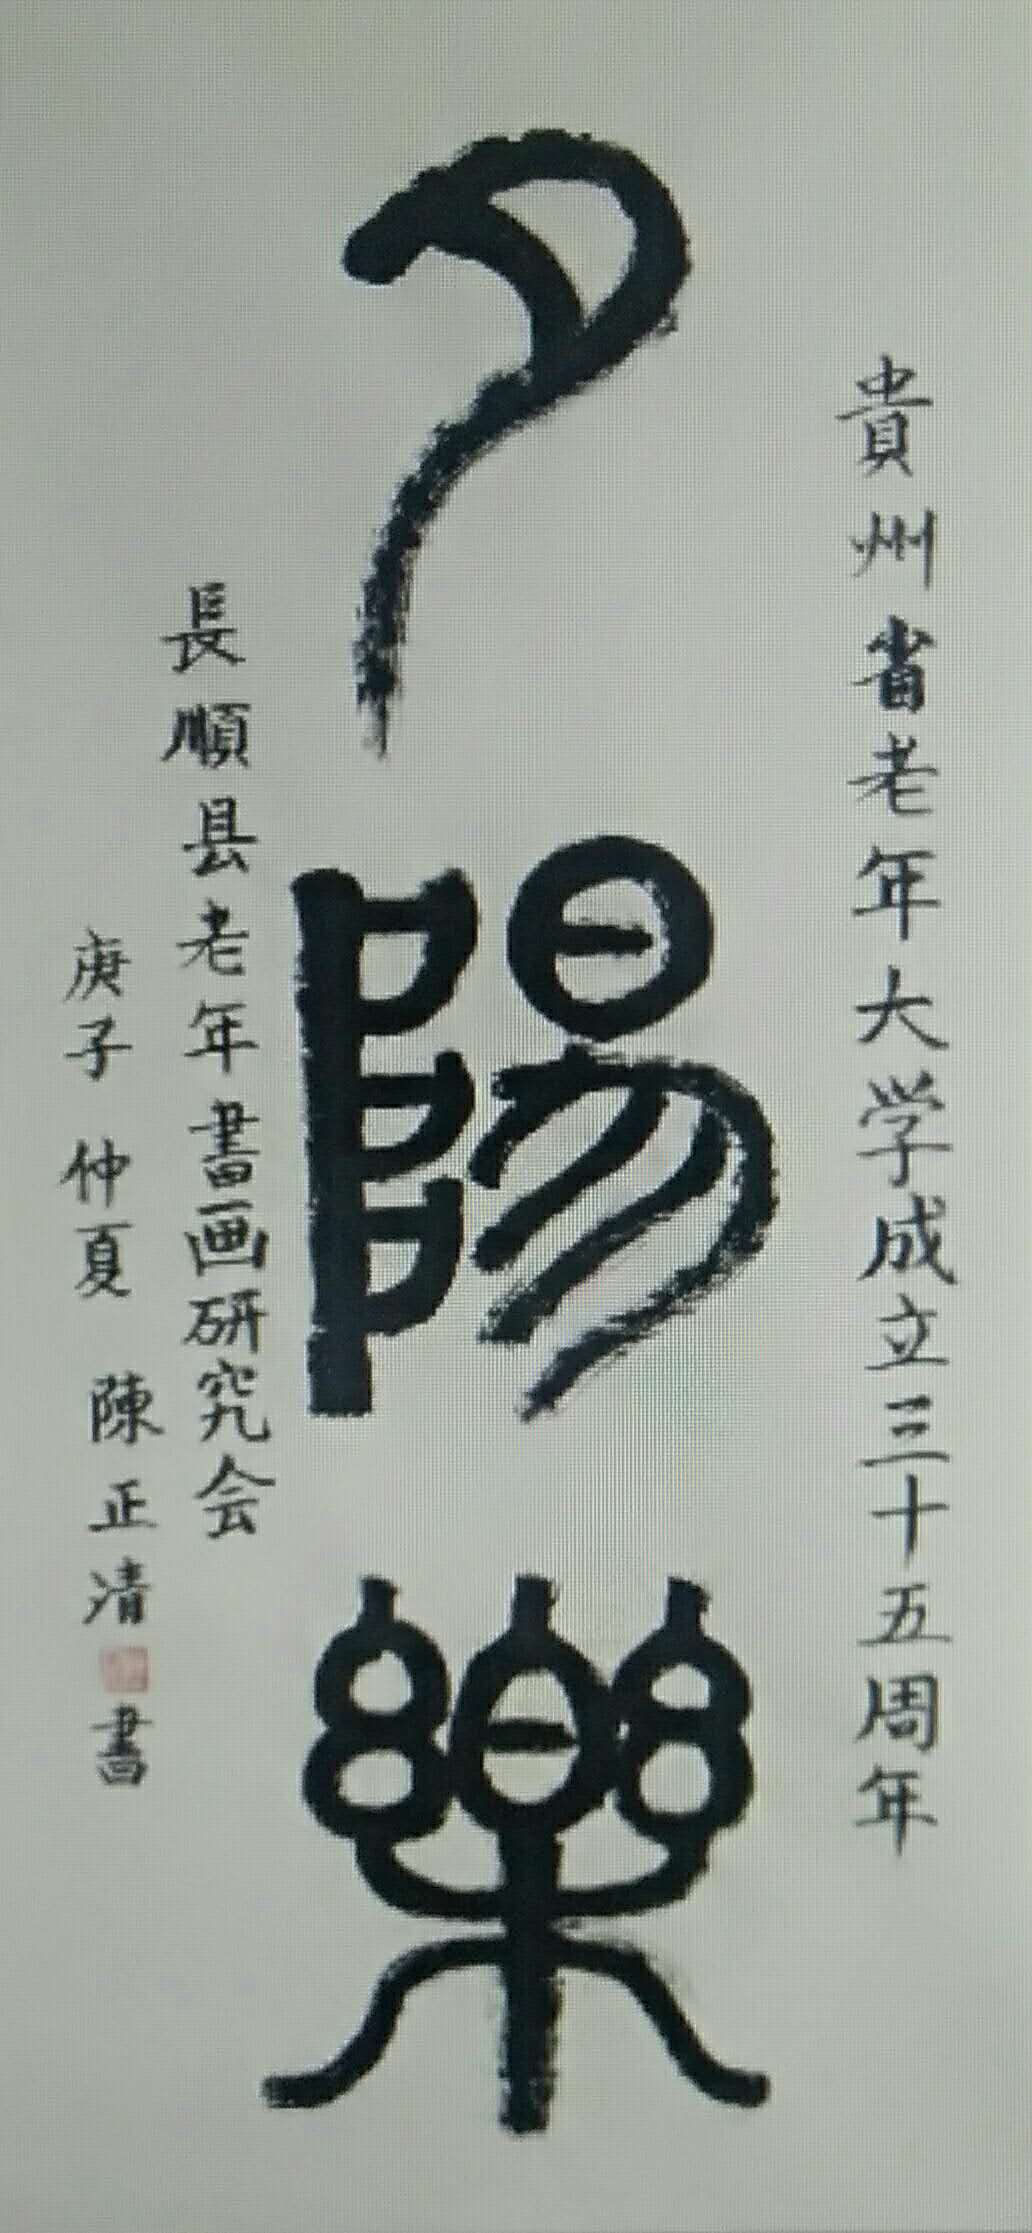 貴州省老年大学成立三十五周年
夕陽樂
長順县老年書画研究会
庚子 仲夏 陳正清書